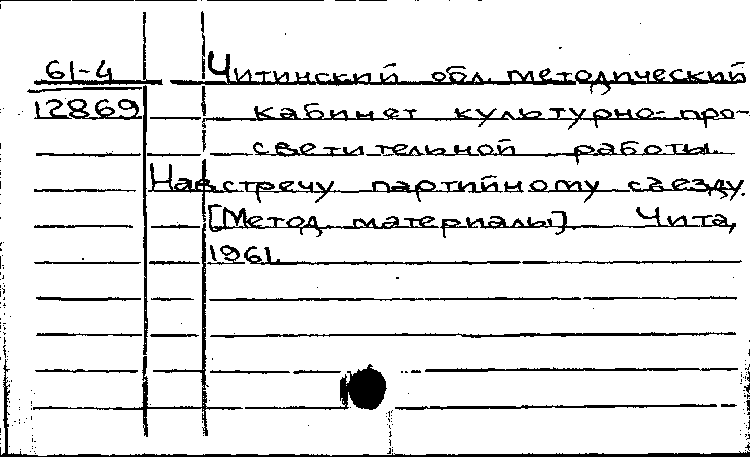 61-4 Читинский обл. методический
12869 кабинет культурно-про-
светительной работы.
Навстречу партийному съезду.
[Метод. материалы] Чита,
1961.